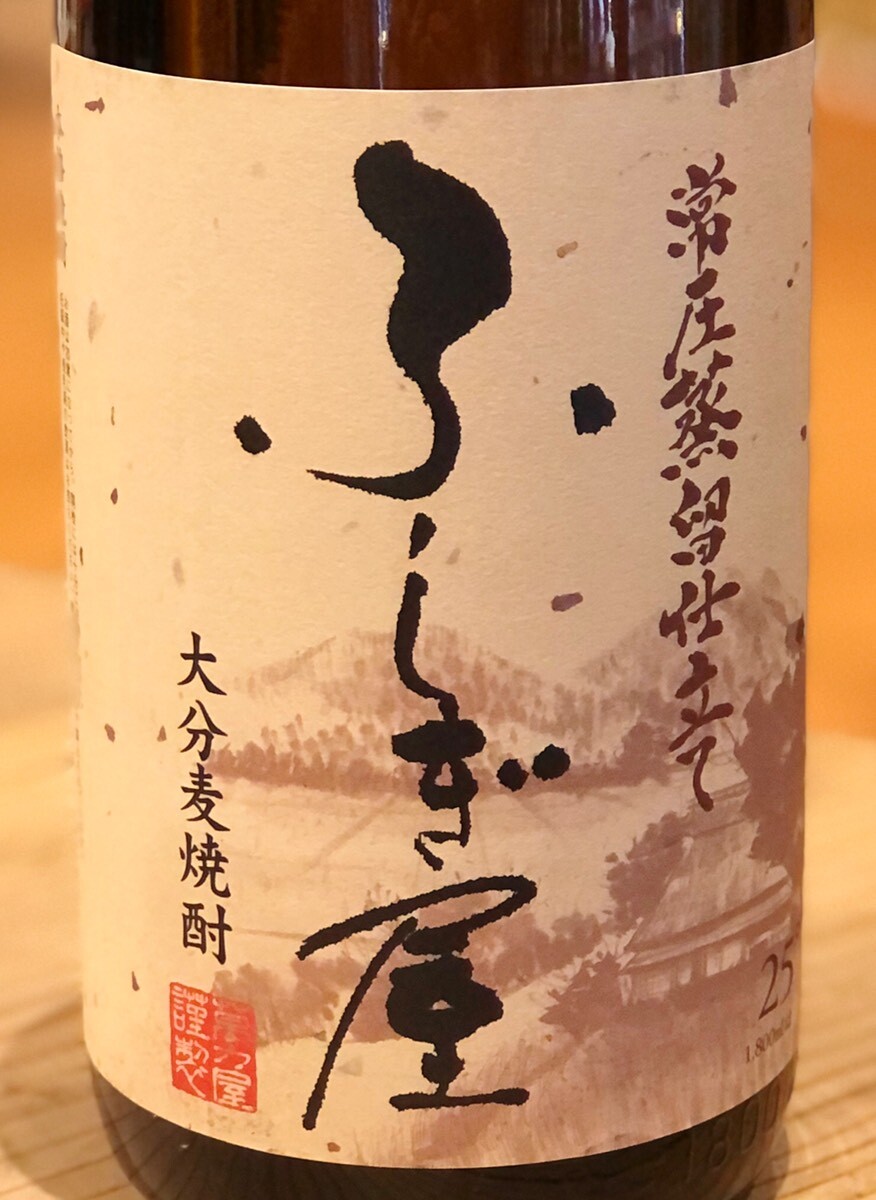 常圧蒸留仕立て
ふしぎ屋
大分麦焼酎
謹製
25
1,800ml
1800